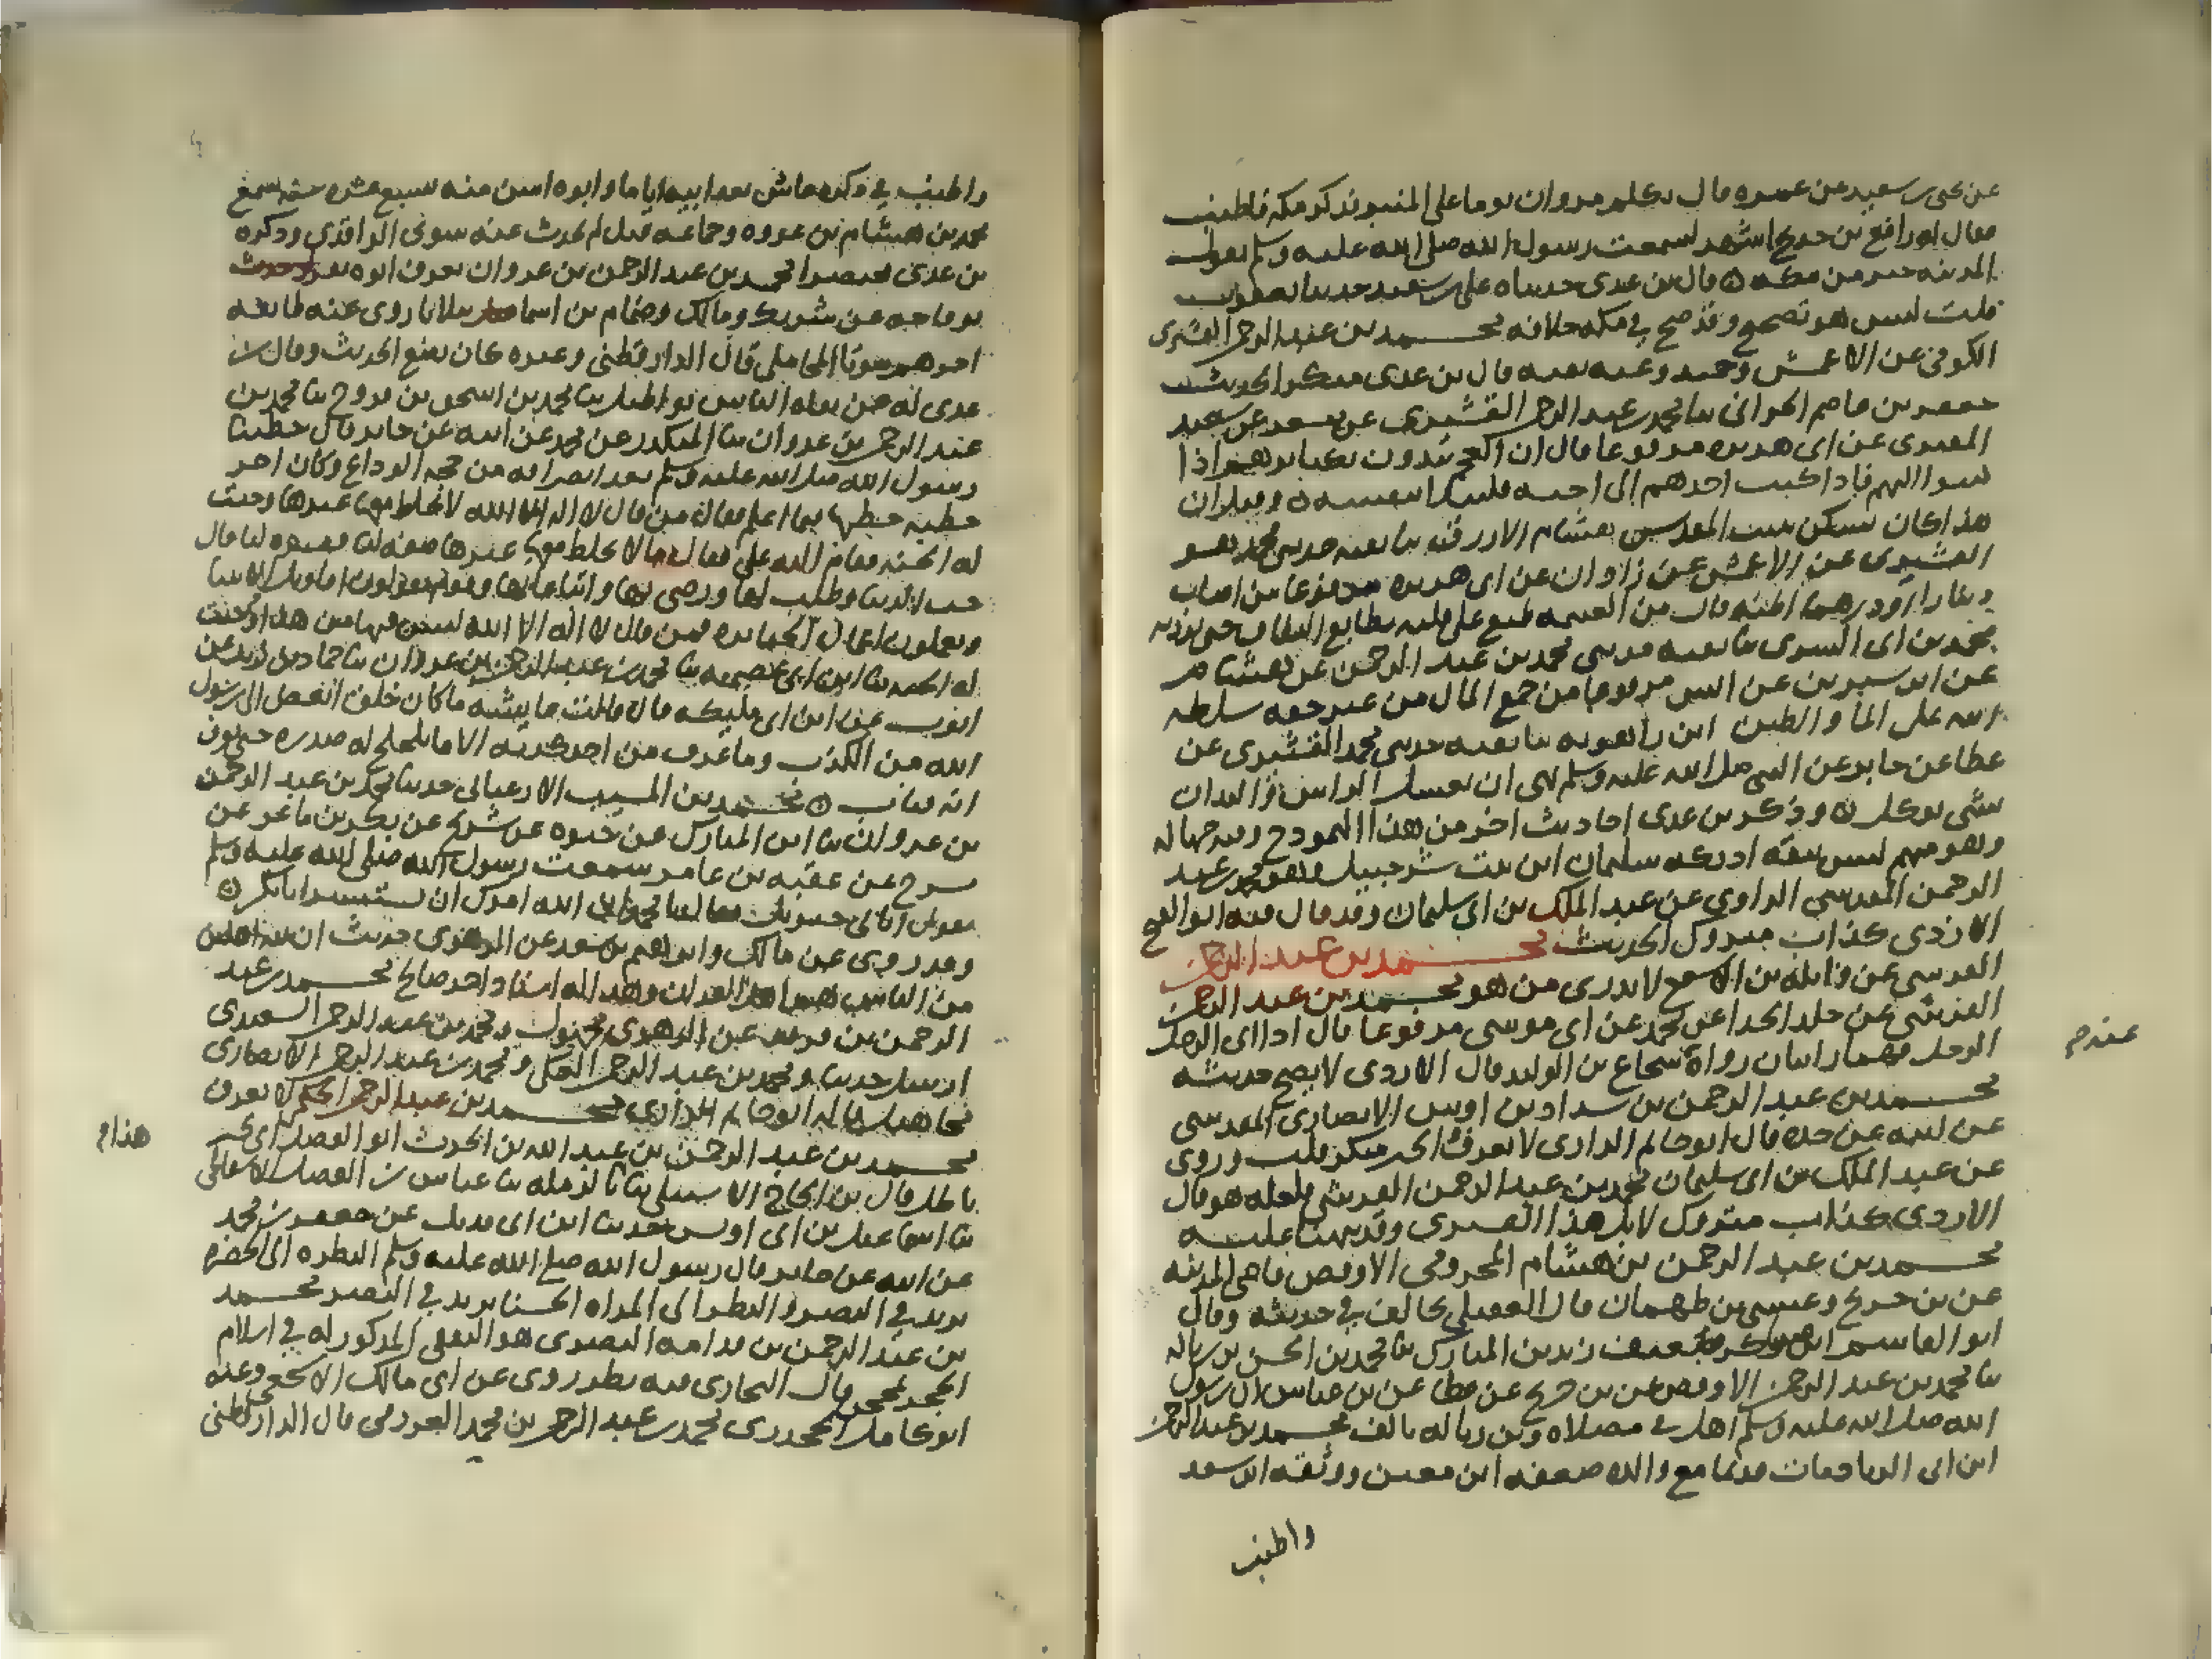 عن يحيى بن سعيد عن عمره قال تكلم مروان يوما على المنبر فذكر مكه فاطنب
فقال له رافع بن خديج اشهد لسمعت رسول الله صلى الله عليه وسلم يقول
المدينه خير من مكه قال بن عدى حدثناه على بن سعيد حدثنا يعقوب
قلت ليس هو بصحيح وقد صح في مكه خلافه محمد بن عبد الرحمن القشيرى
الكوفى عن الاعمش وحميد وعنه بقيه قال بن عدى منكر الحديث
جعفر بن عاصم الحرانى ثنا محمد بن عبد الرحمن القشيرى عن مسعر عن سعيد
المقبرى عن ابى هريره مرفوعا قال ان العجم يبدون بكبارهم اذا
كتبوا اليهم فاذا كتب احدهم الى اخيه فليبدا بنفسه وقيل ان
هذا كان يسكن بيت المقدس هشام الازرق ثنا بقيه حدثنى محمد هو
القشيرى عن الاعمش عن زاذان عن ابى هريره مرفوعا من اصاب
دينارا او درهما قال من الغنيمه طبع على قلبه بطابع النفاق حتى يوديه
محمد بن ابى السرى ثنا بقيه حدثنى محمد بن عبد الرحمن عن هشام
عن ابن سيرين عن انس مرفوعا من جمع المال من غير حقه سلطه
الله على الما والطين ابن راهويه ثنا بقيه حدثنى محمد القشيرى عن
عطا عن جابر عن النبي صلى الله عليه وسلم نهى ان يغسل الراس
بشى يوكل وذكر بن عدى احاديث اخر من هذا النموذج وفيه جهاله
وهو متهم ليس بثقه ادركه سليمان ابن بنت شرحبيل وهو محمد بن عبد
الرحمن المقدسي الراوى عن عبد الملك بن ابى سليمان وقد قال فيه ابو الفتح
الازدى كذاب متروك الحديث محمد بن عبد الرحمن
القدسى عن واثله بن الاسقع لا يدرى من هو محمد بن عبد الرحمن
القرشى عن خالد الحذا عن محمد عن ابى موسى مرفوعا قال اذا اتى الرجل
الرجل فهما زانيان رواه شجاع بن الوليد قال الازدى لا يصح حديثه
محمد بن عبد الرحمن بن شداد بن اوس الانصارى المقدسى
عن ابيه عن جده قال ابو حاتم الرازى لا يعرف الخبر منكر قلت وروى
عن عبد الملك بن ابى سليمان محمد بن عبد الرحمن القرشى فلعله هو قال
الازدى كذاب متروك لابل هذا القشيرى وقد نبهنا عليه
محمد بن عبد الرحمن بن هشام المخزومى الاوقص قاضى المدينه
عن بن جريج وعيسى بن طهمان قال العقيلى يخالف في حديثه وقال
ابو القاسم ابن عساكر ضعيف زيد بن المبارك ثنا محمد بن الحسن بن زباله
ثنا محمد بن عبد الرحمن الاوقص عن بن جريج عن عطا عن بن عباس ان رسول
الله صلى الله عليه وسلم اهل في مصلاه وبن زباله تالف محمد بن عبد الرحمن
ابن ابى الزناد مات قديما مع والده ضعفه ابن معين ووثقه ابن سعد
واطنب
عندم
واطنب في ذكره عاش بعد ابيه اياما وابوه اسن منه بسبع عشره سنه سمع
محمد بن هشام بن عروه وجماعه قيل لم يحدث عنه سوى الواقدى وذكره
بن عدى مختصرا محمد بن عبد الرحمن بن غزوان يعرف ابوه بقراد حدث
بوقاحه عن شريك ومالك وضمام بن اسماعيل ببلايا روى عنه طائفه
اخرهم موتا المحاملى قال الدارقطنى وغيره كان يضع الحديث وقال بن
عدى له عن ثقات الناس بواطيل ثنا محمد بن اسحق بن فروخ ثنا محمد بن
عبد الرحمن بن غزوان ثنا المنكدر عن محمد عن ابيه عن جابر قال خطبنا
رسول الله صلى الله عليه وسلم بعد انصرافه من حجه الوداع وكان اخر
خطبه خطبها فيما اعلم فقال من قال لا اله الا الله لا يخلط معها غيرها وجبت
له الجنه فقام اليه على فقال ما لا يخلط معها غيرها صفه لنا فسره لنا قال
حب الدنيا وطلب لها ورضى بها واتباعا لها وقوم يقولون اقاويل الانبيا
ويعملون اعمال الجبابره فمن قال لا اله الا الله ليس فيها من هذا وجبت
له الجنه ثنا ابن ابى عصمه ثنا محمد بن عبد الرحمن بن غزوان ثنا حماد بن زيد عن
ايوب عن ابن ابى مليكه قال قالت عايشه ما كان خلق ابغض الى رسول
الله من الكذب وما عرف من احد كذبه الا ما يتلجلج له صدره حتى يعرف
انه تاب محمد بن المسيب الارغيانى حدثنا محمد بن عبد الرحمن
بن غزوان ثنا ابن المبارك عن حيوه عن شريح عن بكر بن ماعز عن
سرح عن عقبه بن عامر سمعت رسول الله صلى الله عليه وسلم
يقول اتانى جبريل فقال يا محمد ان الله امرك ان تستشير ابا بكر
وقد روى عن مالك وابراهيم بن سعد عن الزهرى حديث ان لله اهلين
من الناس هم اهل القران وهذا له اسناد اخر صالح محمد بن عبد
الرحمن بن عن الزهرى مجهول ومحمد بن عبد الرحمن السعدى
ارسل حديثا ومحمد بن عبد الرحمن العكى ومحمد بن عبد الرحمن الانصارى
مجاهيل قاله ابو حاتم الرازى محمد بن عبد الرحمن الحكم لا يعرف
محمد بن عبد الرحمن بن عبد الله بن الحرث ابو الفضل اتى بخبر
باطل قال بن الحاج الاشبيلى ثنا ثنا عباس بن الفضل الاسفاطى
ثنا اسماعيل بن ابى اويس حدثنا ابن ابى فديك عن جعفر بن محمد
عن ابيه عن جابر قال رسول الله صلى الله عليه وسلم النظره الى الخضره
يزيد في البصر والنظر الى المراه الحسنا يزيد في البصر محمد
بن عبد الرحمن بن قدامه البصرى هو الثقفى المذكور له في اسلام
قال البخارى فيه نظر روى عن ابى مالك الاشجعى وعنه
ابو كامل الجحدرى محمد بن عبد الرحمن بن محمد العرزمى قال الدارقطنى
هذام